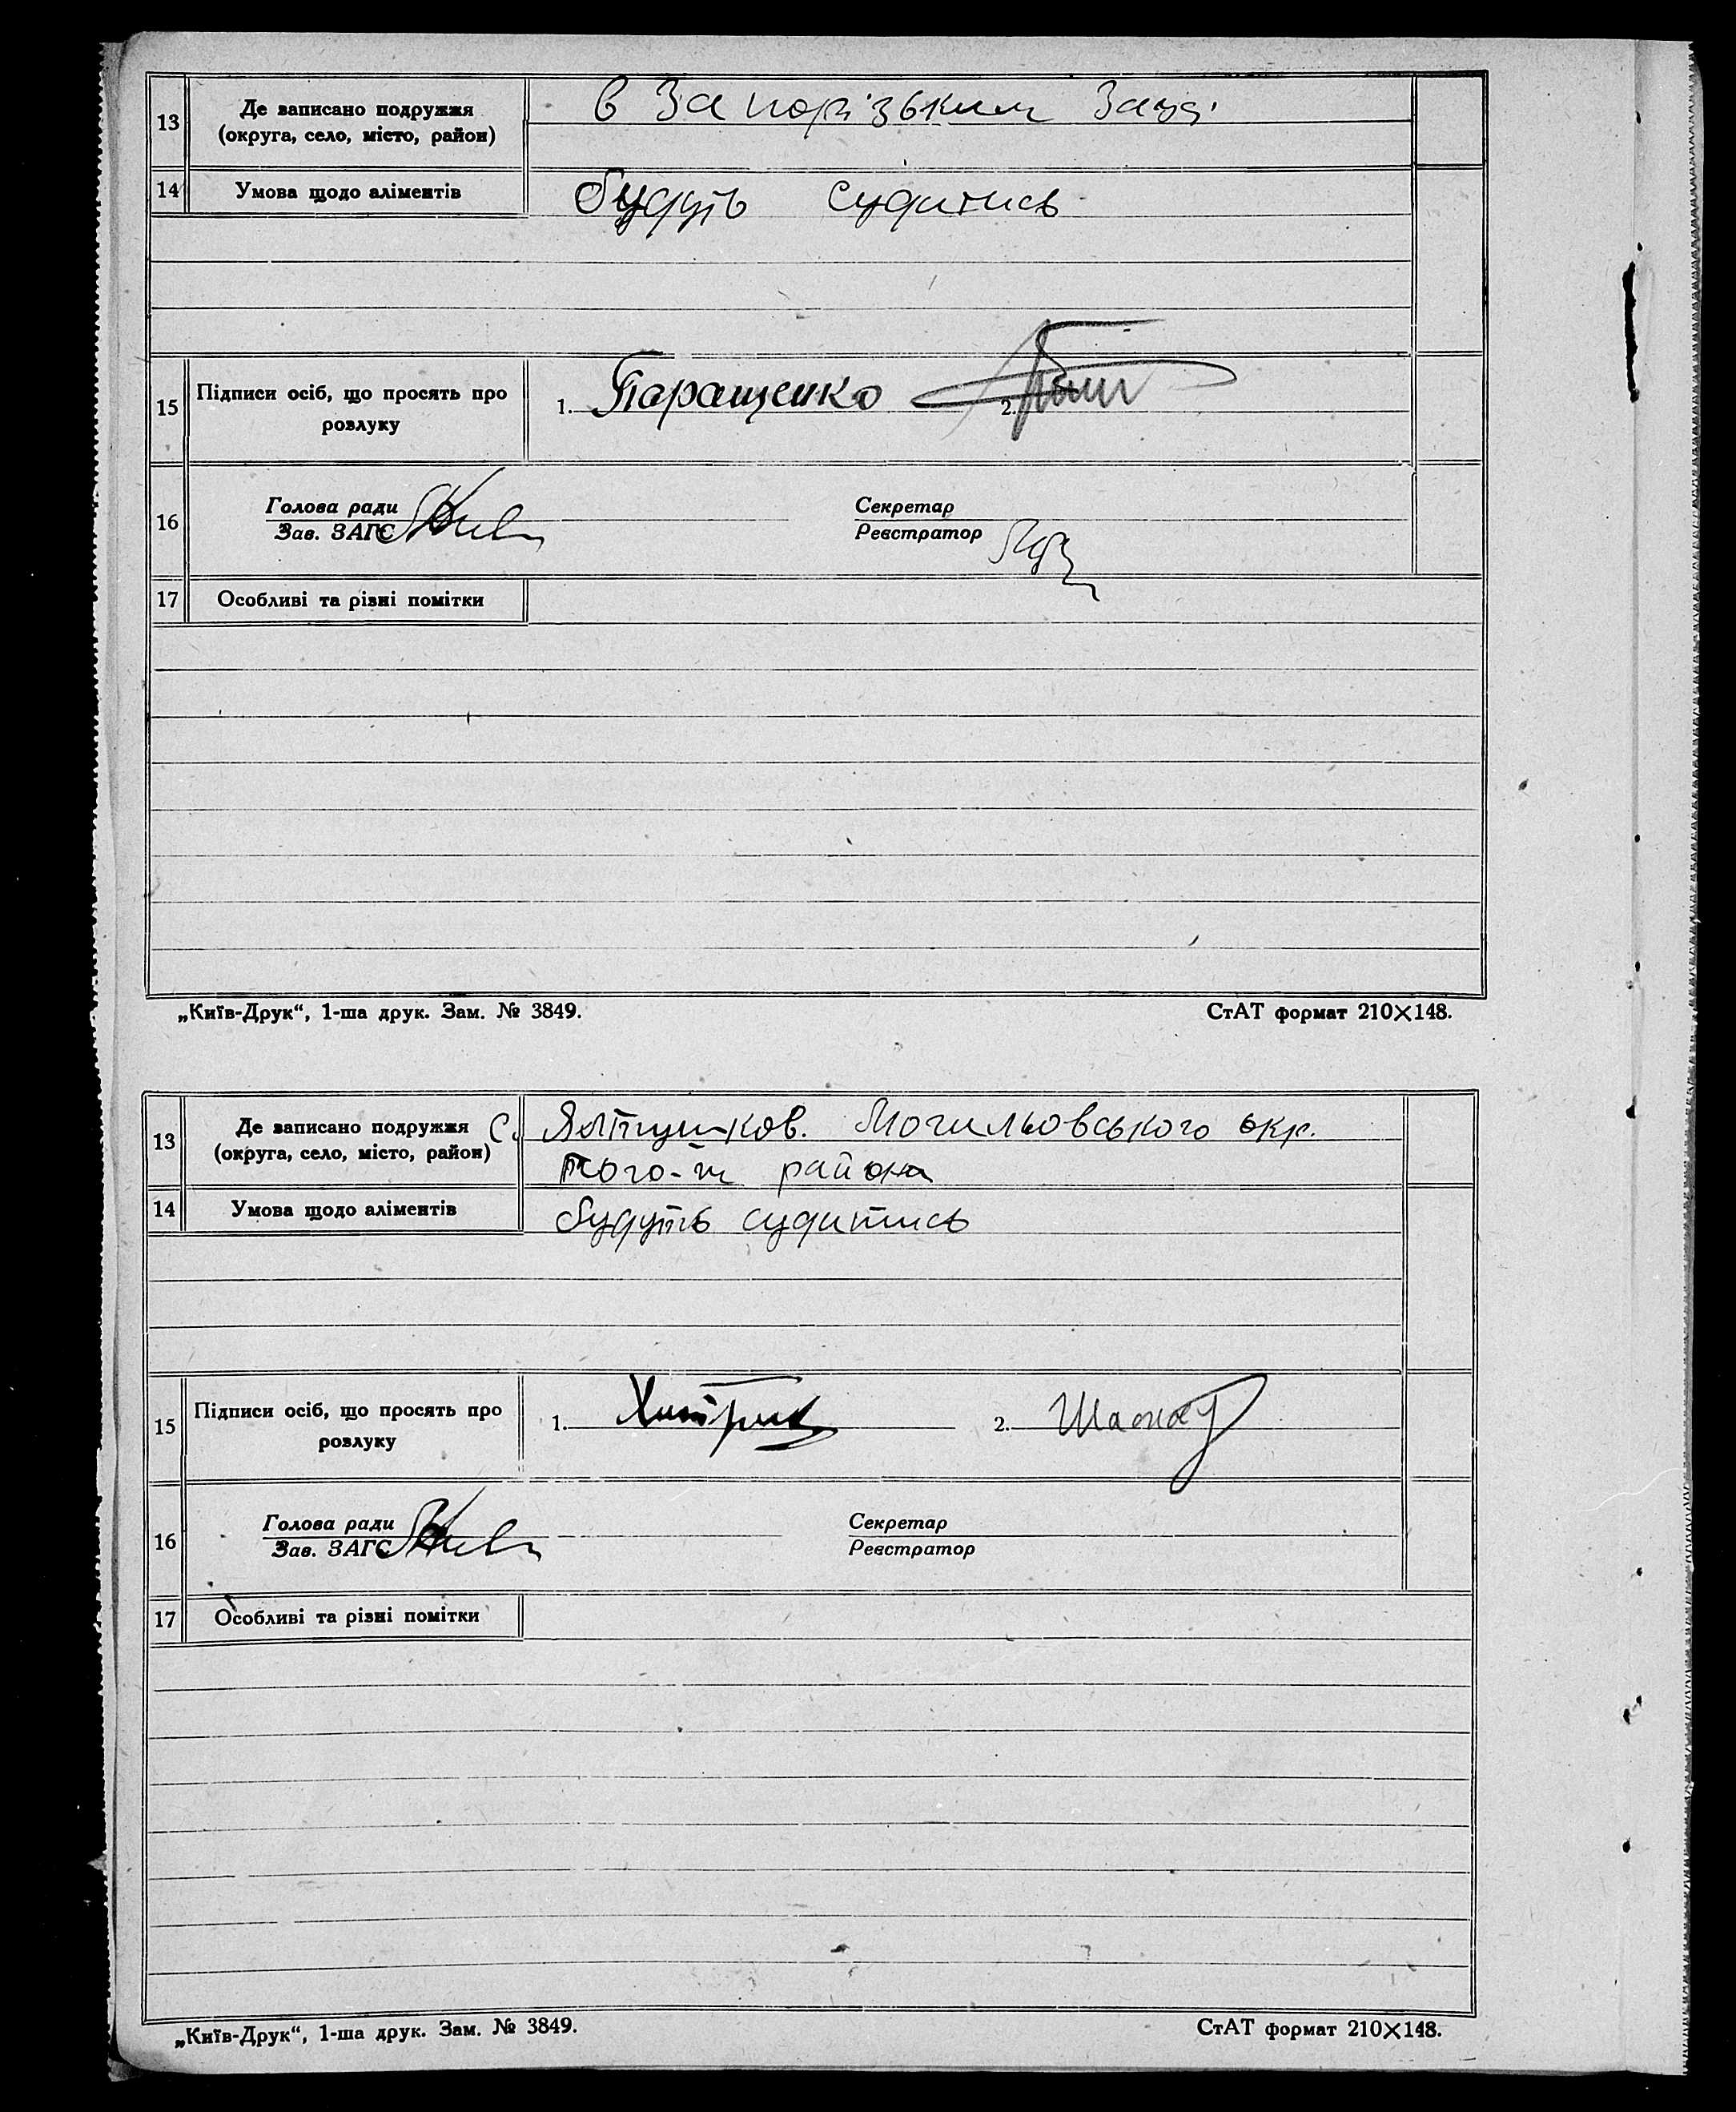 13
Де записано подружжя
(округа, село, місто, район)
в Запорізьким Загзі
14
Умова щодо аліментів
будуть судитись
15
Підписи осіб, що просять про
розлуку
1. Паращенко 2.
16
Голова ради
Зав. ЗАГС
Секретар
Реєстратор
17
Особливі та різні помітки
„Київ-Друк“, 1-ша друк. Зам. № 3849.
СтАТ формат 210×148.
13
Де записано подружжя
(округа, село, місто, район)
с. Ялтушков. Могильовського окр.
того-ж района
14
Умова щодо аліментів
будуть судитись
15
Підписи осіб, що просять про
розлуку
1. 2.
16
Голова ради
Зав. ЗАГС
Секретар
Реєстратор
17
Особливі та різні помітки
„Київ-Друк“, 1-ша друк. Зам. № 3849.
СтАТ формат 210×148.